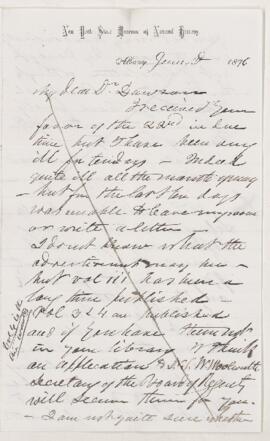 New York State Museum of Natural History
Albany, June 1876
My dear Dr. Dawson
I received your
favor of the 22nd in due
time but I have been very
ill for ten days - Indeed
quite ill all the month of May
- but for the last ten days
was unable to leave my room
or write a letter -
I do not know what the
advertisement may be -
but vol iii has been a
long time published -
Vol 3 & 4 are published
and if you have them not
in your library I think
an application to S. B. Woolworth
Secretary of the Board of Regents
will secure them for you.
- I am not quite sure whether